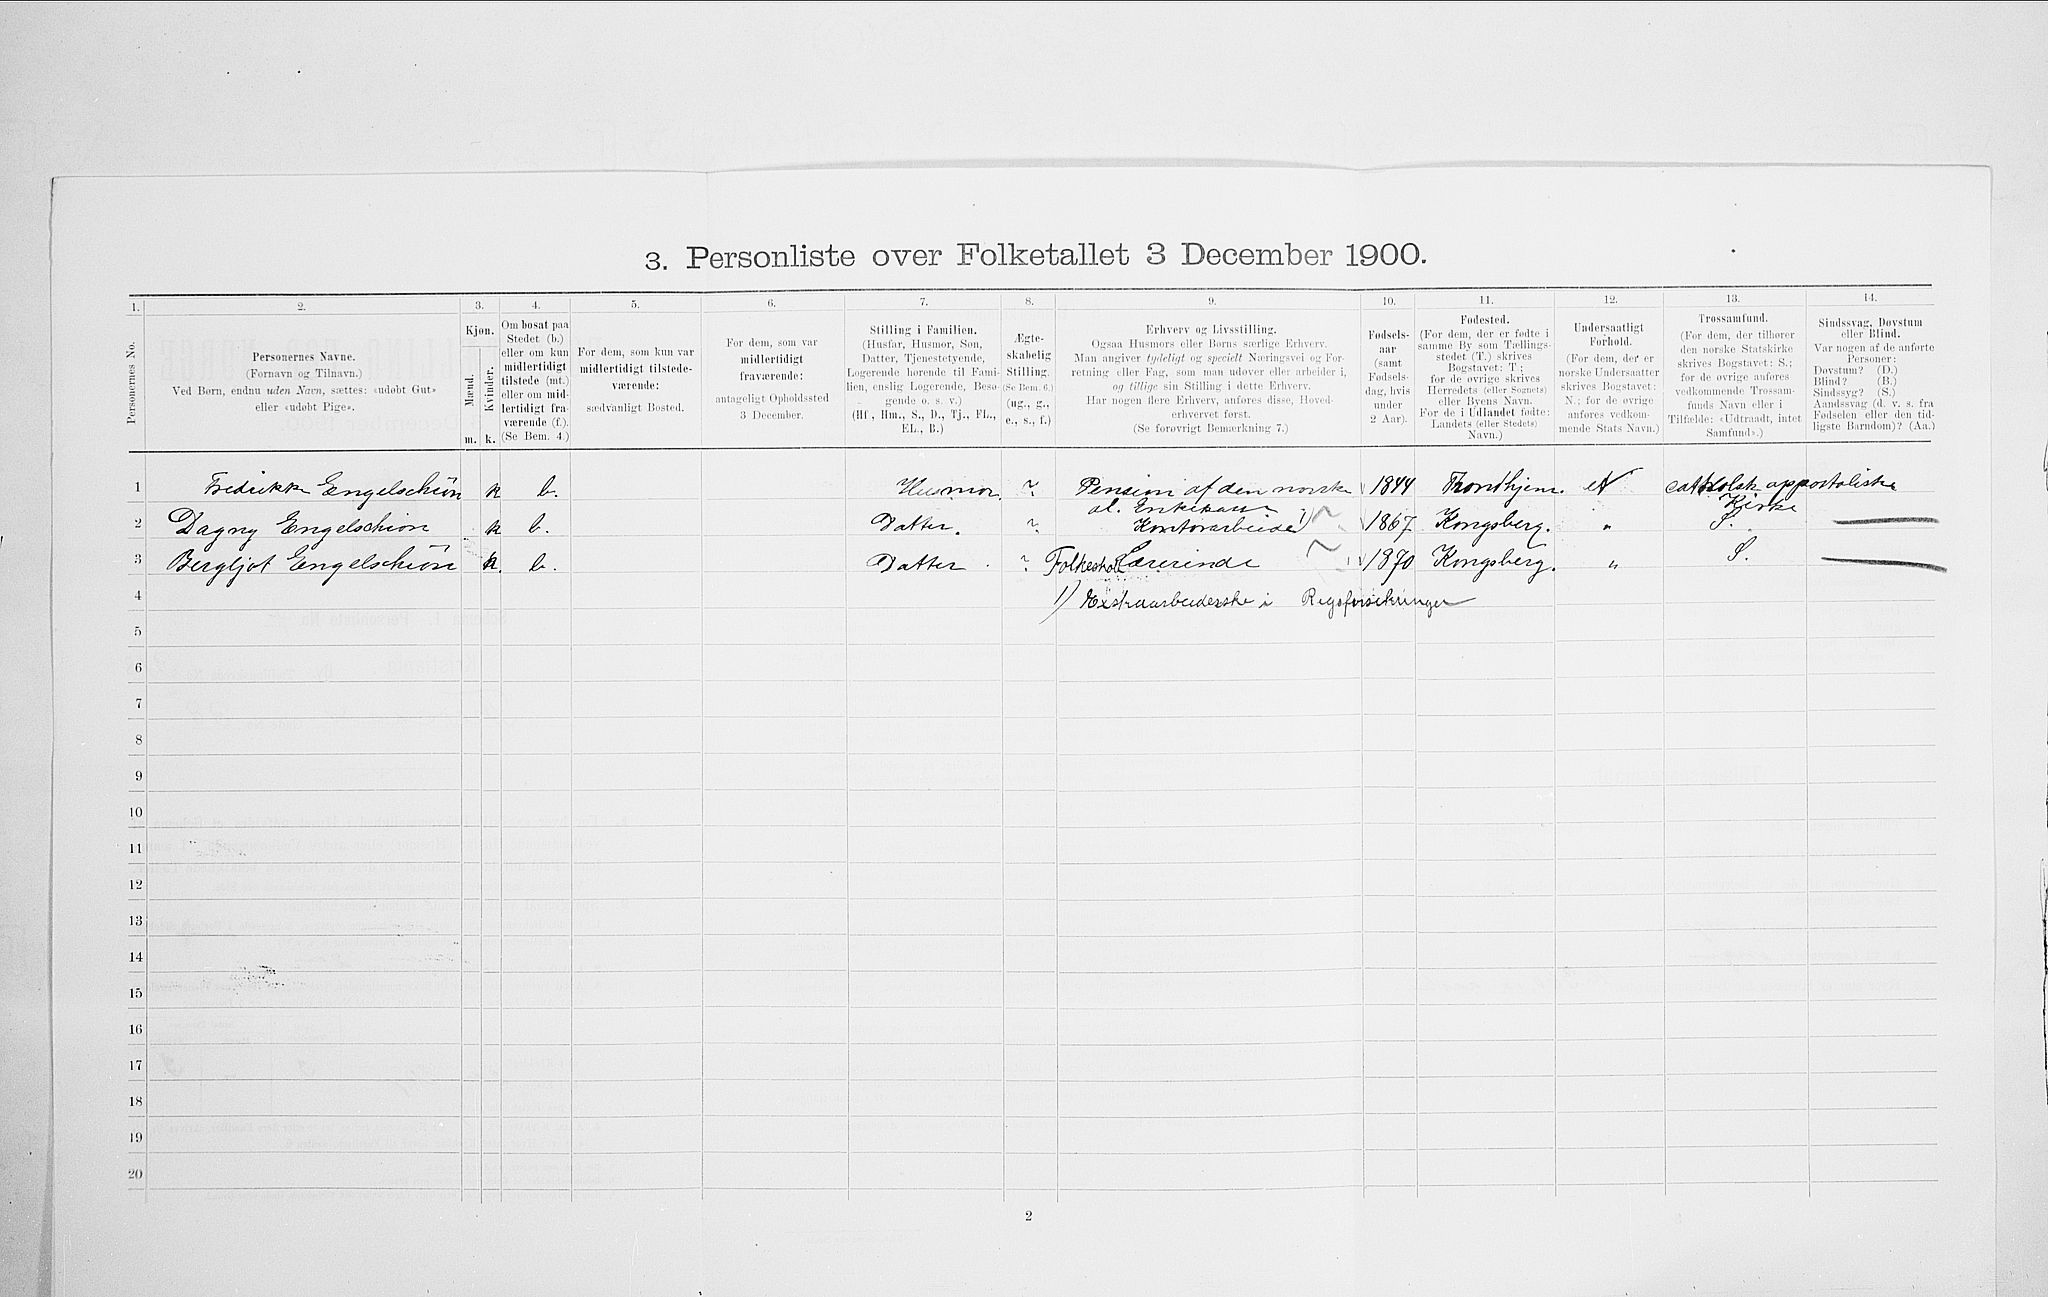 3. Personliste over Folketallet 3 December 1900.
1. 2. 3. 4. 5. 6. 7. 8. 9. 10. 11. 12. 13. 14.
Personernes No.
Personernes Navne.
(Fornavn og Tilnavn.)
Ved Børn, endnu uden Navn, sættes: «udøbt Gut»
eller «udøbt Pige».
Kjøn.
Mænd.
Kvinder.
m. k.
Om bosat paa
Stedet (b.)
eller om kun
midlertidigt
tilstede (mt.)
eller om mid-
lertidigt fra-
værende (f.).
(Se Bem. 4.)
For dem, som kun var
midlertidigt tilstede-
værende:
sædvanligt Bosted.
For dem, som var
midlertidigt
fraværende:
antageligt Opholdssted
3 December.
Stilling i Familien.
(Husfar, Husmor, Søn,
Datter, Tjenestetyende,
Logerende hørende til Fami-
lien, enslig Logerende, Besø-
gende o. s. v.)
(Hf., Hm., S., D., Tj., FL.,
EL., B.)
Ægte-
skabelig
Stilling.
(Se Bem. 6.)
(ug., g.,
e., s., f.)
Erhverv og Livsstilling.
Ogsaa Husmors eller Børns særlige Erhverv.
Man angiver tydeligt og specielt Næringsvei og For-
retning eller Fag, som man udøver eller arbeider i,
og tillige sin Stilling i dette Erhverv.
Har nogen flere Erhverv, anføres disse, Hoved-
erhvervet først.
(Se forøvrigt Bemærkning 7.)
Fødsels-
aar
(samt
Fødsels-
dag, hvis
under
2 Aar).
Fødested.
(For dem, der er fødte i
samme By som Tællings-
stedet (T.) skrives
Bogstavet: T.;
for de øvrige skrives
Herredets (eller Sognets)
eller Byens Navn.
For de i Udlandet fødte:
Landets (eller Stedets)
Navn.)
Undersaatligt
Forhold.
(For dem, der er
norske Undersaatter
skrives Bogstavet:
N.; for de øvrige
anføres vedkom-
mende Stats Navn.)
Trossamfund.
(For dem, der tilhører
den norske Statskirke
skrives Bogstavet: S.;
for de øvrige anføres
vedkommende Trossam-
funds Navn eller i
Tilfælde: «Udtraadt, intet
Samfund».)
Sindssvag, Døvstum
eller Blind.
Var nogen af de anførte
Personer:
Døvstum? (D.)
Blind? (B.)
Sindssyg? (S.)
Aandssvag (d. v. s. fra
Fødselen eller den tid-
ligste Barndom)? (Aa.)
1 Fredrikke Engelschiön k b. Husmor Pension af den norske 1844 Trondhjem. N catholsk appostoliske
al. Enkekasse Kirke
2 Dagny Engelschiön k b. Datter. Kontorarbeide 1) 1867 Kongsberg. " S.
3 Bergljot Engelschiön k. b. Datter Folkeskol Lærerinde 1870 Kongsberg. " S.
4 1) Extraarbeiderske i Rigsforsikringen
5
6
7
8
9
10
11
12
13
14
15
16
17
18
19
20
2